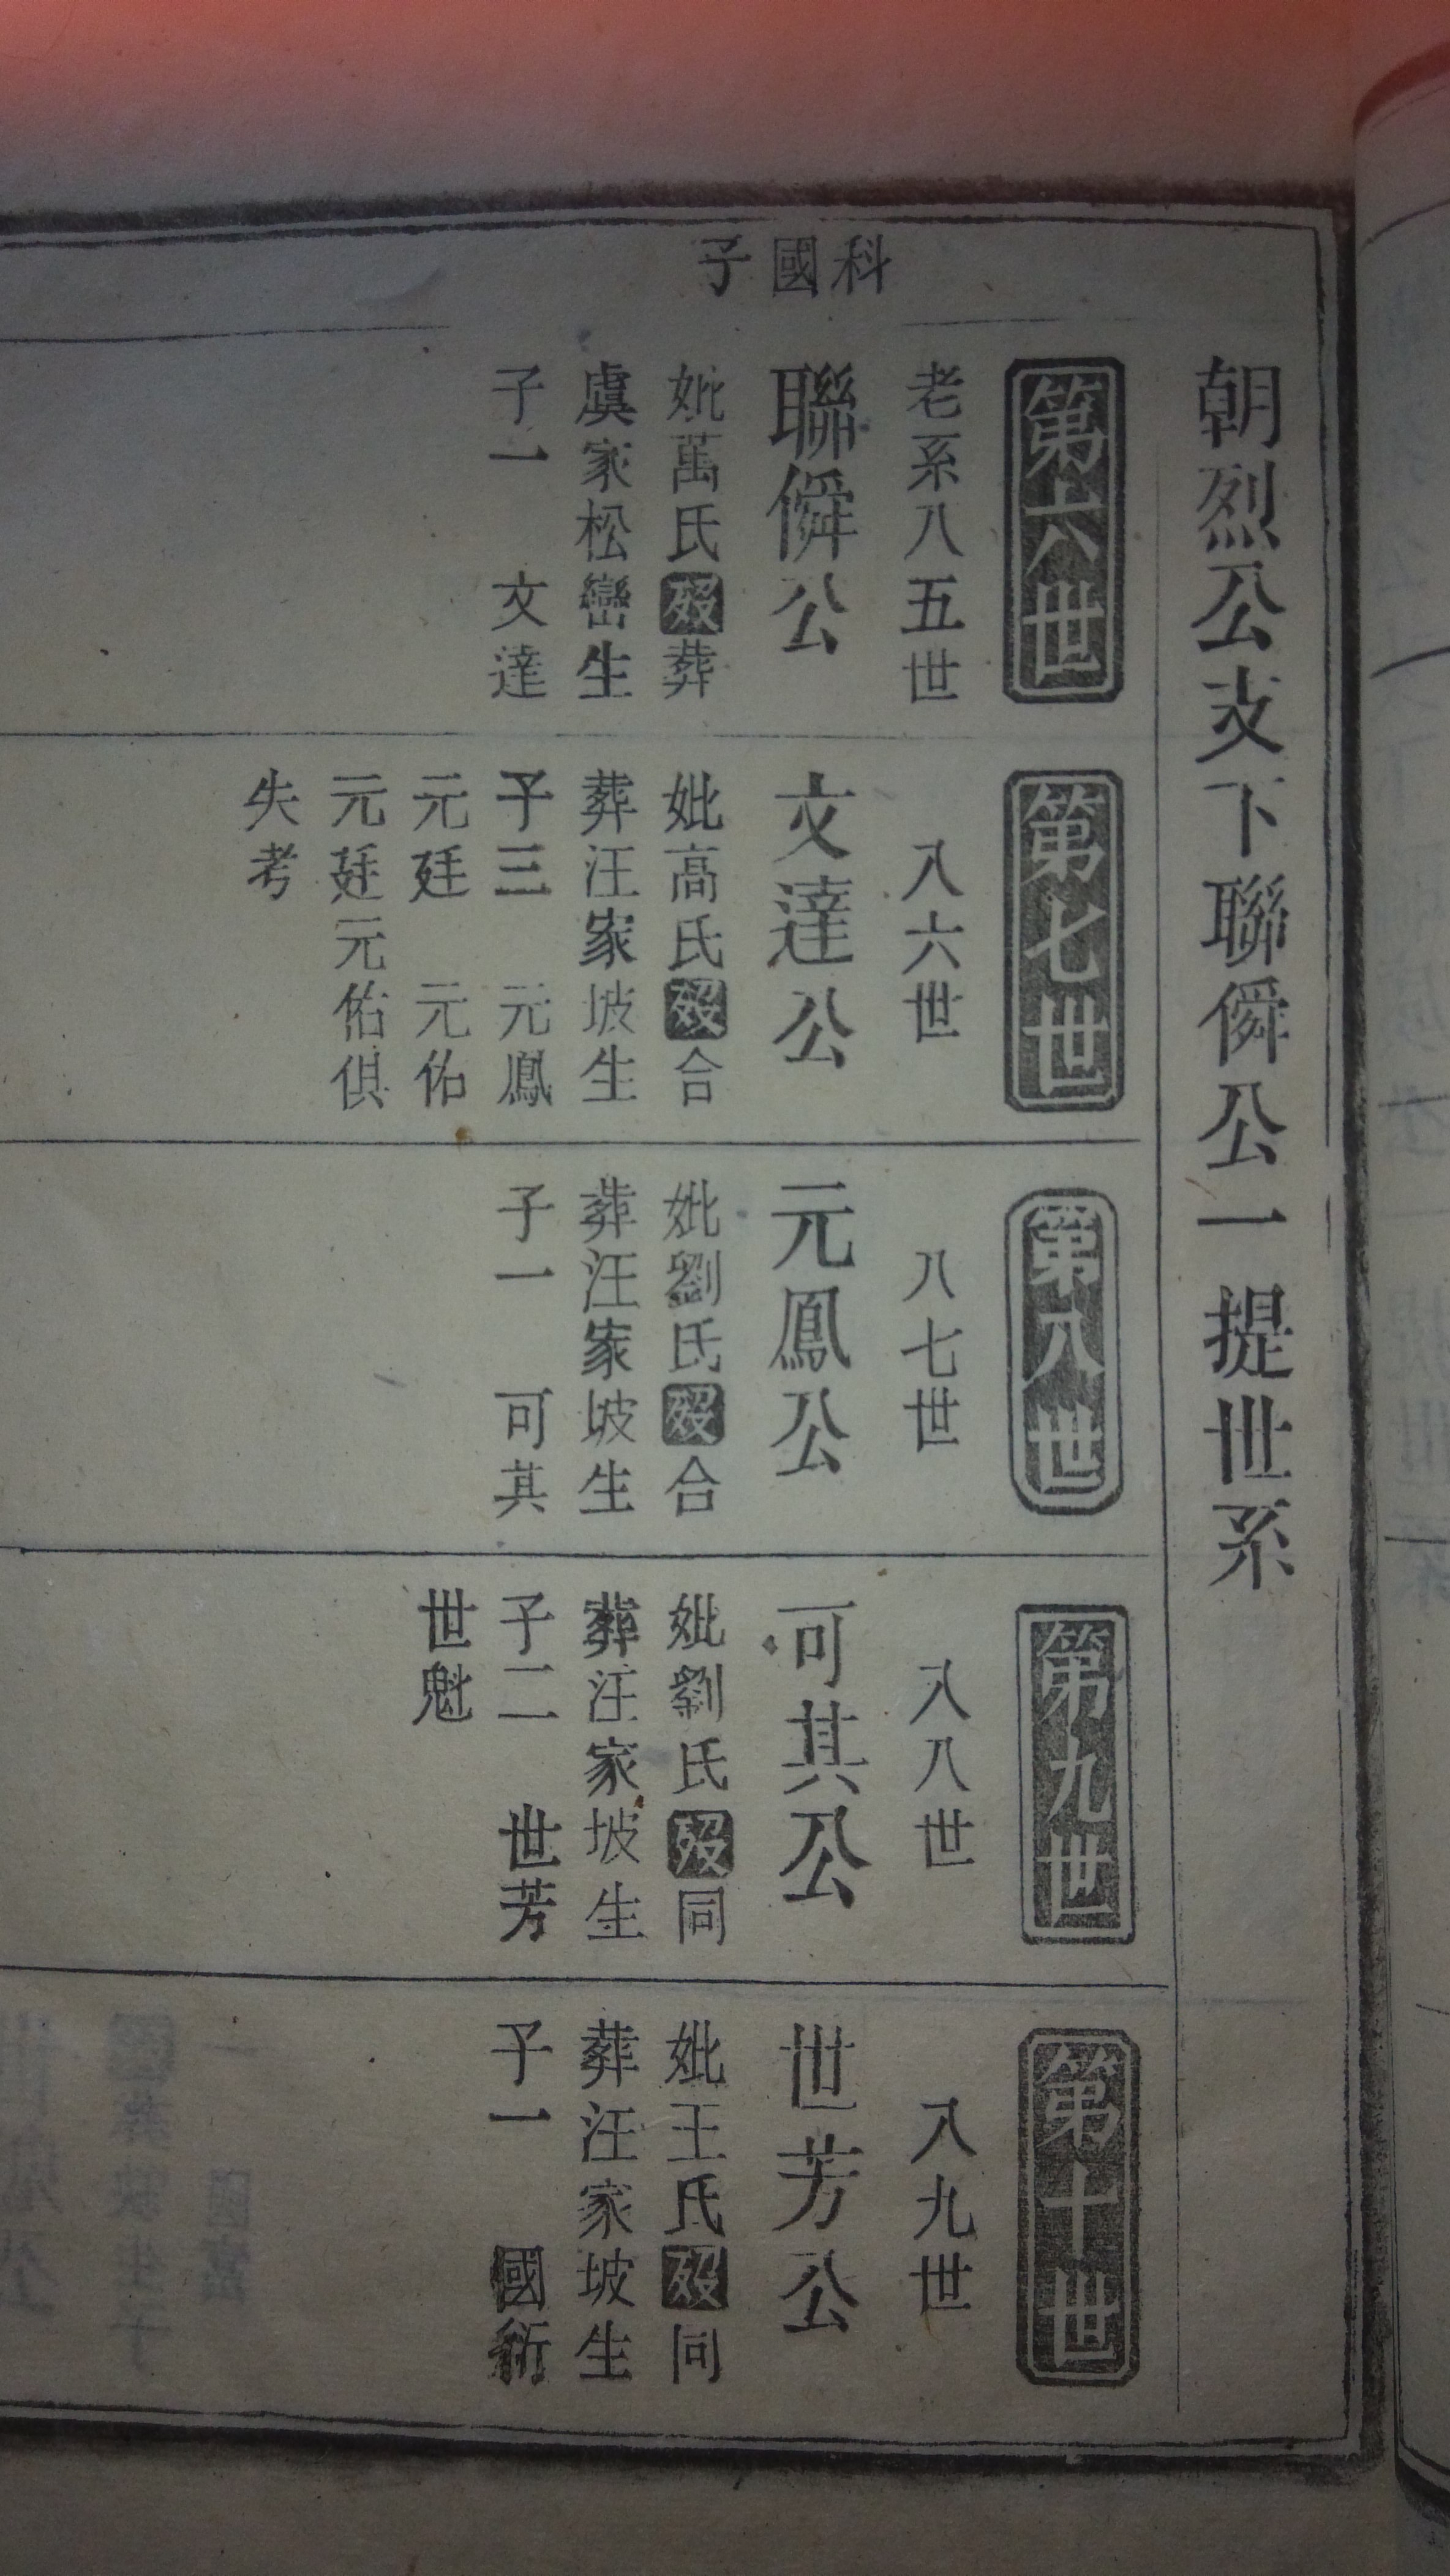 朝烈公支下聯僢公一提世系
科國子
第六世
老系八五世
聯僢公
妣萬氏歿葬
虞家松巒生
子一 文達
第七世
八六世
文達公
妣高氏歿合
葬汪家坡生
子三 元鳳
元廷 元佑
元廷元佑俱
失考
第八世
八七世
元鳳公
妣劉氏歿合
葬汪家坡生
子一 可其
第九世
八八世
可其公
妣劉氏歿同
葬汪家坡生
子二 世芳
世魁
第十世
八九世
世芳公
妣王氏歿同
葬汪家坡生
子一 國